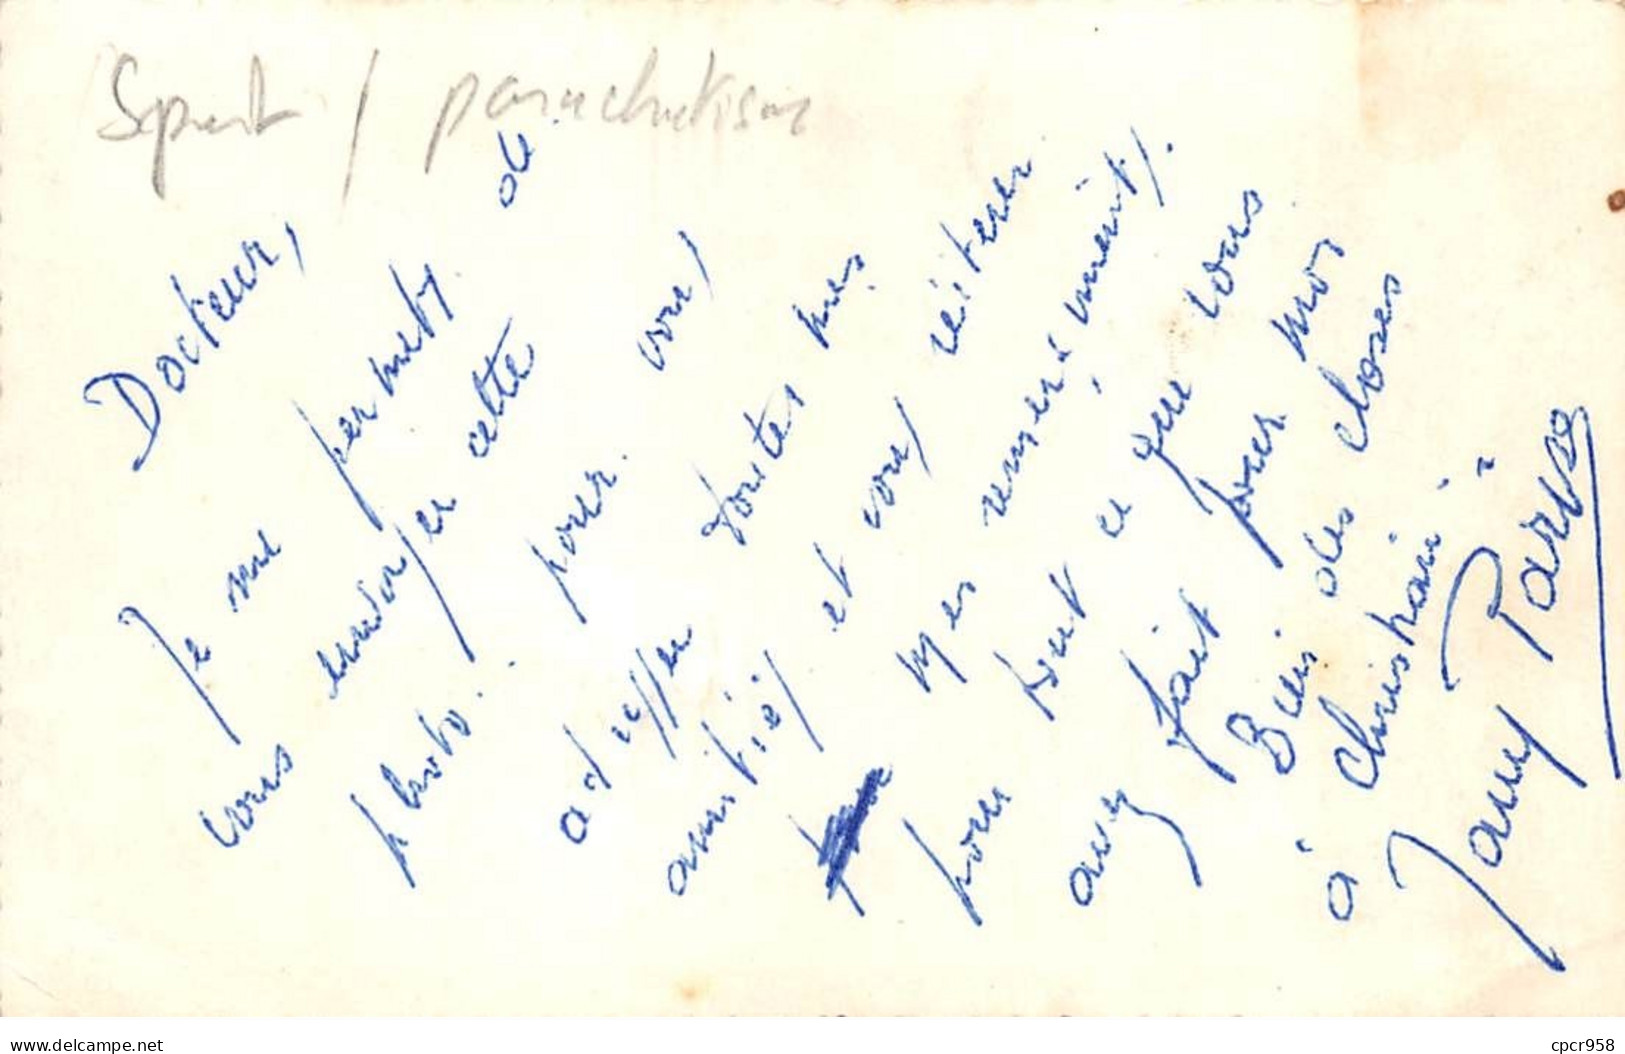 Sport / parachutisme
Docteur,
Je me permets de
vous envoyer cette
photo. pour vous
adresser toutes mes
amitiés et vous réiterer
mes remerciements.
pour tout ce que vous
avez fait pour moi
Bien des choses
à Christian.
delcampe.net
cpcr958